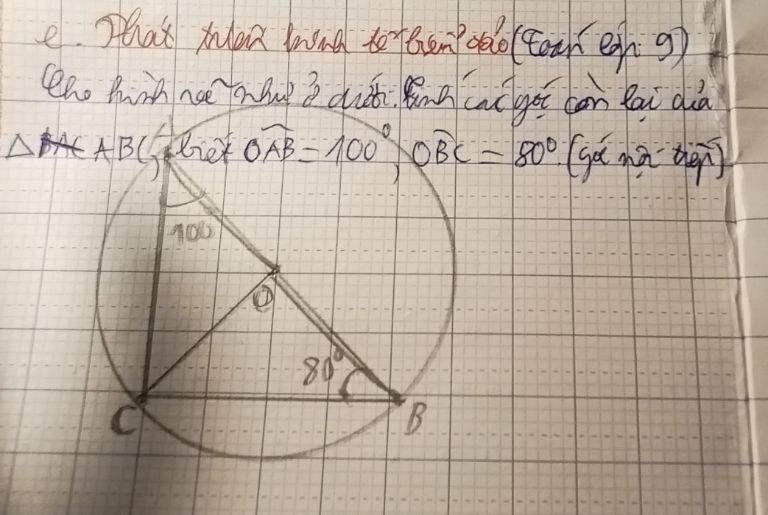 e. Phát triển hình từ biển đảo (Toán lớp 9)
Cho hình vẽ như ở dưới. tính các góc còn lại của
△ ABC, biết OAB = 100°, OBC = 80° (góc nội tiếp)
100
O
80°
C
B